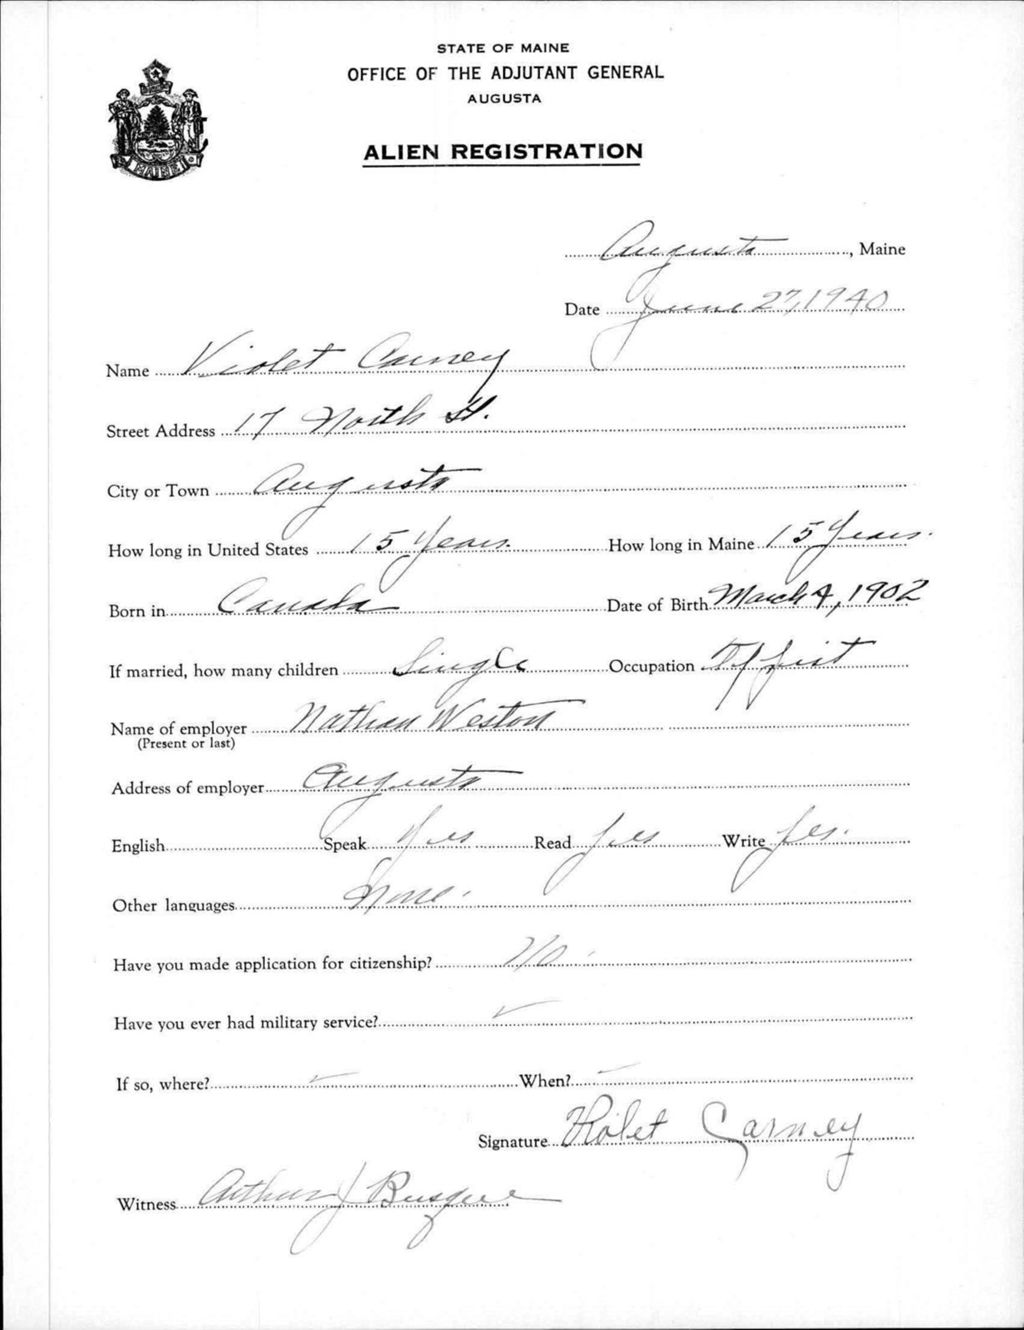 STATE OF MAINE
OFFICE OF THE ADJUTANT GENERAL
AUGUSTA
MAINE
ALIEN REGISTRATION
Augusta, Maine
Date June 27, 1940
Name Violet Carney
Street Address 17 North St.
City or Town Augusta
How long in United States 15 Years. How long in Maine 15 Years.
Born in Canada Date of Birth March 4, 1902
If married, how many children Single Occupation Typist
Name of employer Nathan Weston
(Present or last)
Address of employer Augusta
English Speak Yes Read Yes Write Yes.
Other languages None.
Have you made application for citizenship? No.
Have you ever had military service?
If so, where? When?
Signature Violet Carney
Witness Arthur J Busque